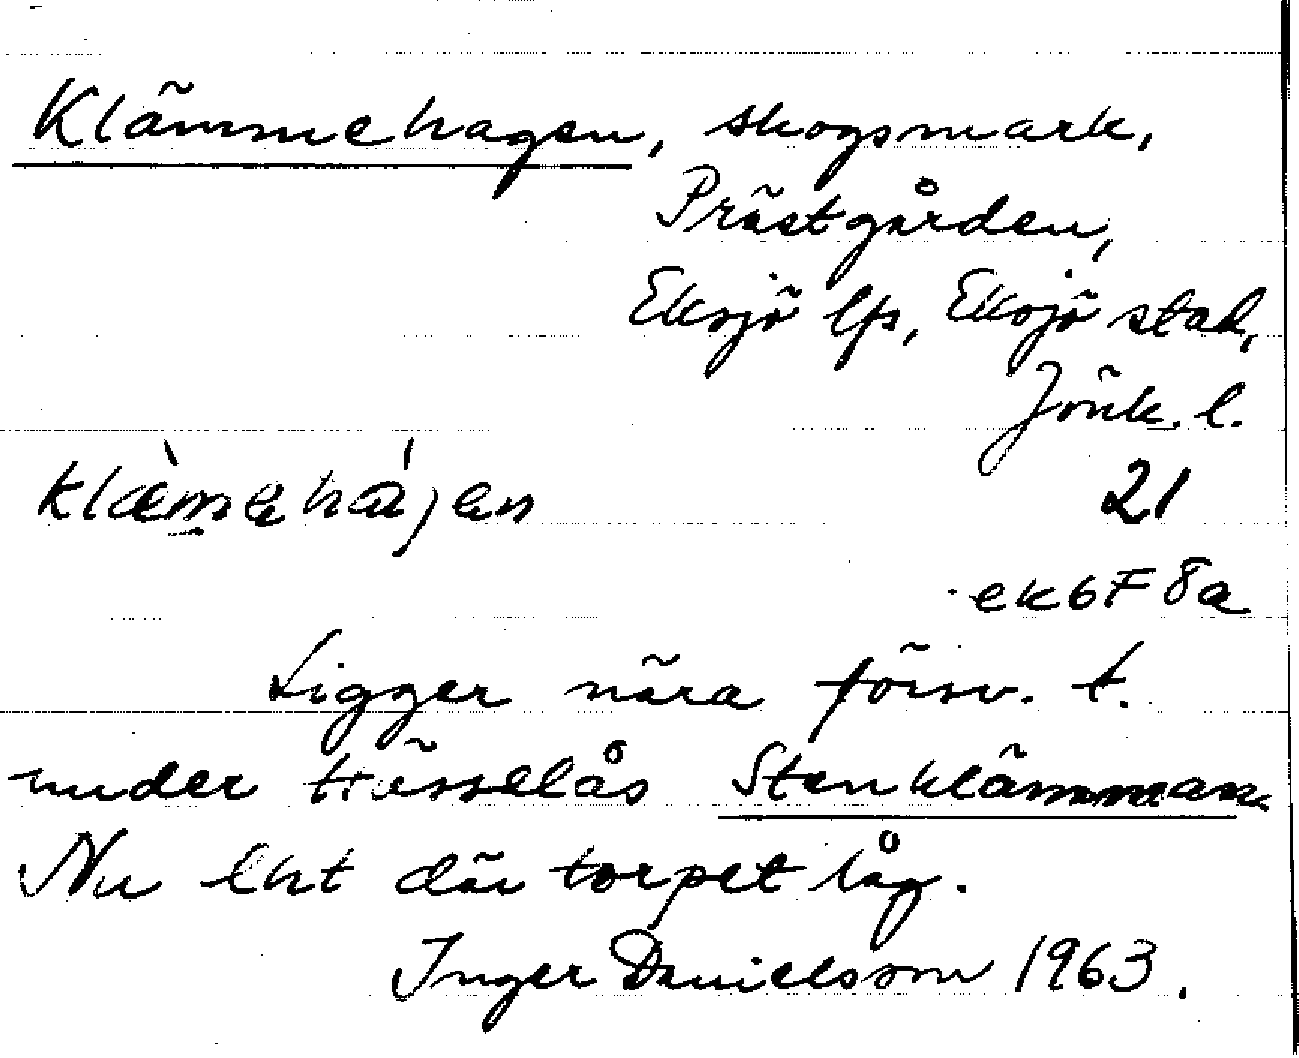 Klämmehagen, skogsmark,
Prästgården,
Eksjö lfs, Eksjö stad,
Jönk. l.
klæ̀mehájen
21
ek 6F 8a
Ligger nära försv. t.
under Hässelås Stenklämman
Nu lht där torpet låg.
Inger Danielsson 1963.